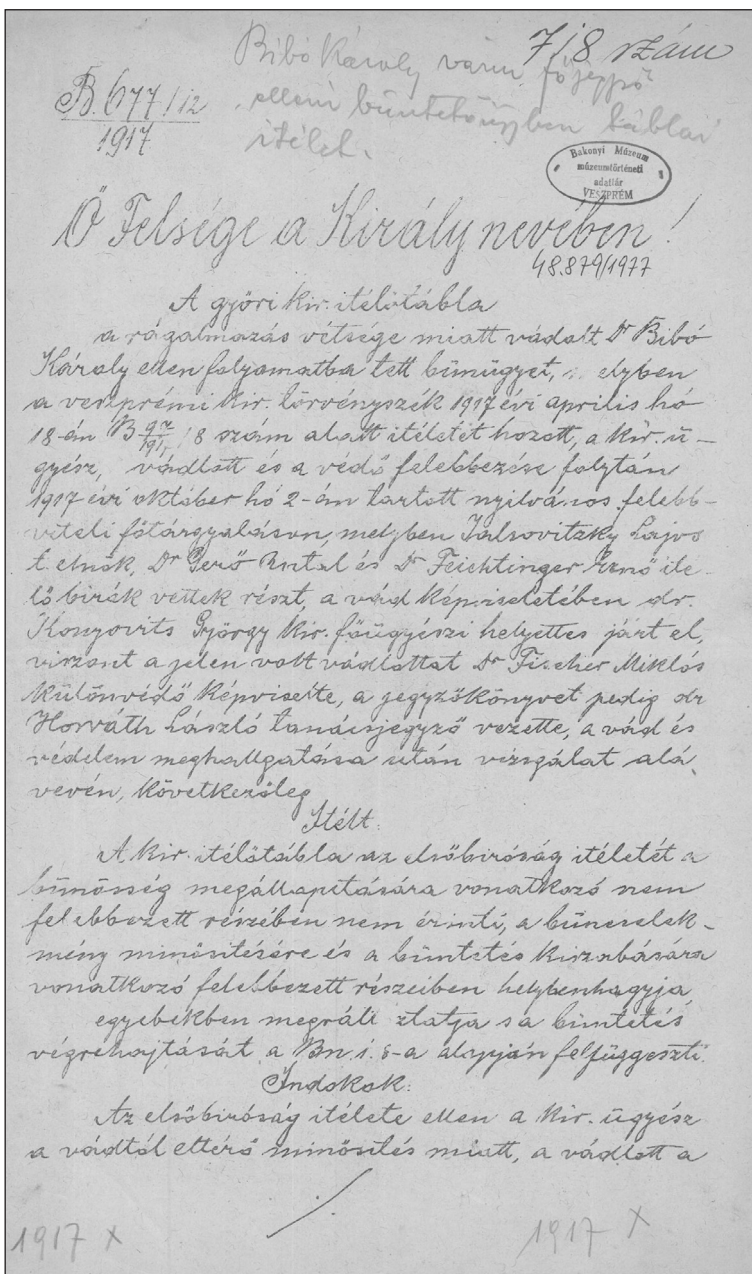 7/8 szám
Bibó Károly város főjegyző
elleni büntetőügyben táblai
itélet.
B. 677/12
1917
Bakonyi Múzeum
múzeumtörténeti
adattár
VESZPRÉM
Ő Felsége a Király nevében!
48.879/1977
A győri kir. itélőtábla
a rágalmazás vétsége miatt vádolt Dr Bibó
Károly ellen folyamatba tett bünügyet, elyben
a veszprémi kir. törvényszék 1917 évi április hó
18-án B /8 szám alatt itéletet hozott, a kir. ü-
gyész, vádlott és a védő felebbezése folytán
1917 évi október hó 2-án tartott nyilvános felebb-
viteli főtárgyaláson, melyben Jalsovitzky Lajos
t. elnök, Dr Gerő Antal és Dr Feichtinger Ernő ité-
lő birák vettek részt, a vád képviseletében dr.
Konyovits György kir. főügyészi helyettes járt el,
viszont a jelen volt vádlottat Dr Fischer Miklós
különvédő képviselte, a jegyzőkönyvet pedig dr
Horváth László tanácsjegyző vezette, a vád és
védelem meghallgatása után vizsgálat alá
vevén, következőleg
Itélt:
A kir. itélőtábla az elsőbiróság itéletét a
bünösség megállapitására vonatkozó nem
felebbezett részében nem érinti, a büncselek-
mény minősitésére és a büntetés kiszabására
vonatkozó felebbezett részeiben helybenhagyja,
egyebekben megváltoztatja s a büntetés
végrehajtását a Bn. 1. §-a alapján felfüggeszti.
Indokok:
Az elsőbiróság itélete ellen a kir. ügyész
a vádtól eltérő minősités miatt, a vádlott a
./.
1917 X
1917 X